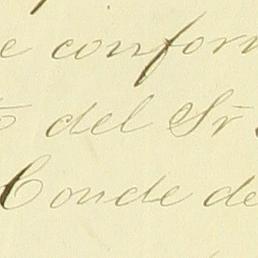 e conform
del Sr.
Conde de